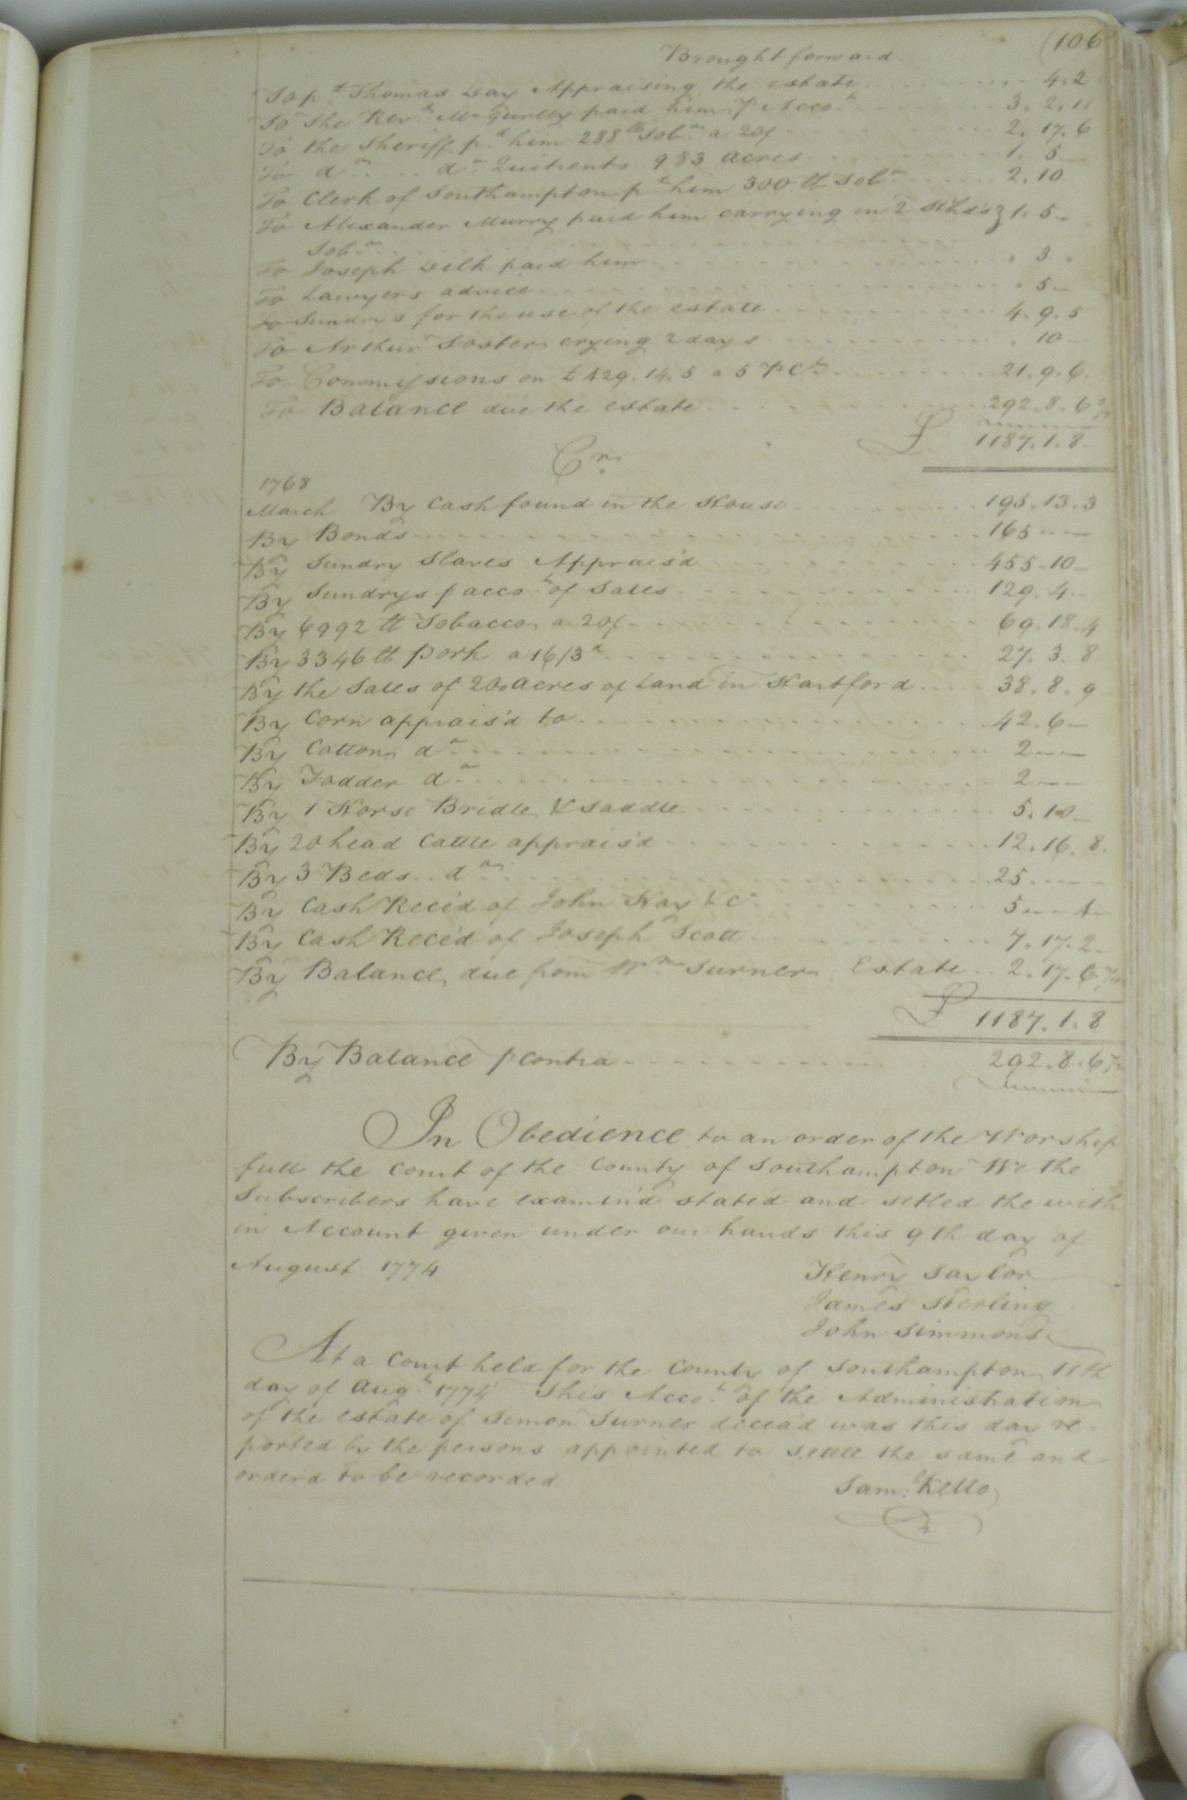 (106
Brought forward
To p.d Thomas Day Appraising the estate 4.2
To The Rev.d Mr Gurley paid him p Acco.t 3.2.11
To the Sheriff p.d him 288 lb Tob.o a 20/ 2.17.6
To d.o d.o Quitrents 983 acres 1.5
To Clerk of Southampton p.d him 300 lb Tob.o 2.10
To Alexander Murry paid him carrying in 2 Hhds 1.5
Tob.o
To Joseph Delk paid him 3
To Lawyers advice 5
To Sundrys for the use of the estate 4.9.5
To Arthur Foster crying 2 days 10
To Commissions on £429.14.5 a 5 p C.t 21.9.6
To Balance due the estate 292.8.6
£ 1187.1.8
Cr.
1768
March By Cash found in the House 195.13.3
By Bonds 165
By Sundry Slaves Apprais'd 455.10
By Sundrys p acco.t of Sales 129.4
By 6992 lb Tobacco a 20/ 69.18.4
By 3346 lb Pork a 16/3d 27.3.8
By the Sales of 200 acres of Land in Hartford 38.8.9
By Corn apprais'd to 42.6
By Cotton d.o 2
By Fodder d.o 2
By 1 Horse Bridle & Saddle 5.10
By 20 head Cattle apprais'd 12.16.8
By 3 Beds d.o 25
By Cash Rece'd of John Hay & C.o 5
By Cash Rece'd of Joseph Scott 7.17.2
By Balance due from W.m Turner Estate 2.17.6
£ 1187.1.8
By Balance p contra 292.8.6
In Obedience to an order of the Worship
full the Court of the County of Southampton We the
Subscribers have examin'd stated and setled the with
in Account given under our hands this 9th day of
August 1774
Henry Taylor
James Sterling
John Simmons
At a Court held for the County of Southampton 11th
day of Aug.t 1774 This Acco.t of the Administration
of the estate of Simon Turner decea'd was this day re-
ported by the persons appointed to settle the same and
order'd to be recorded
Sam.l Kello